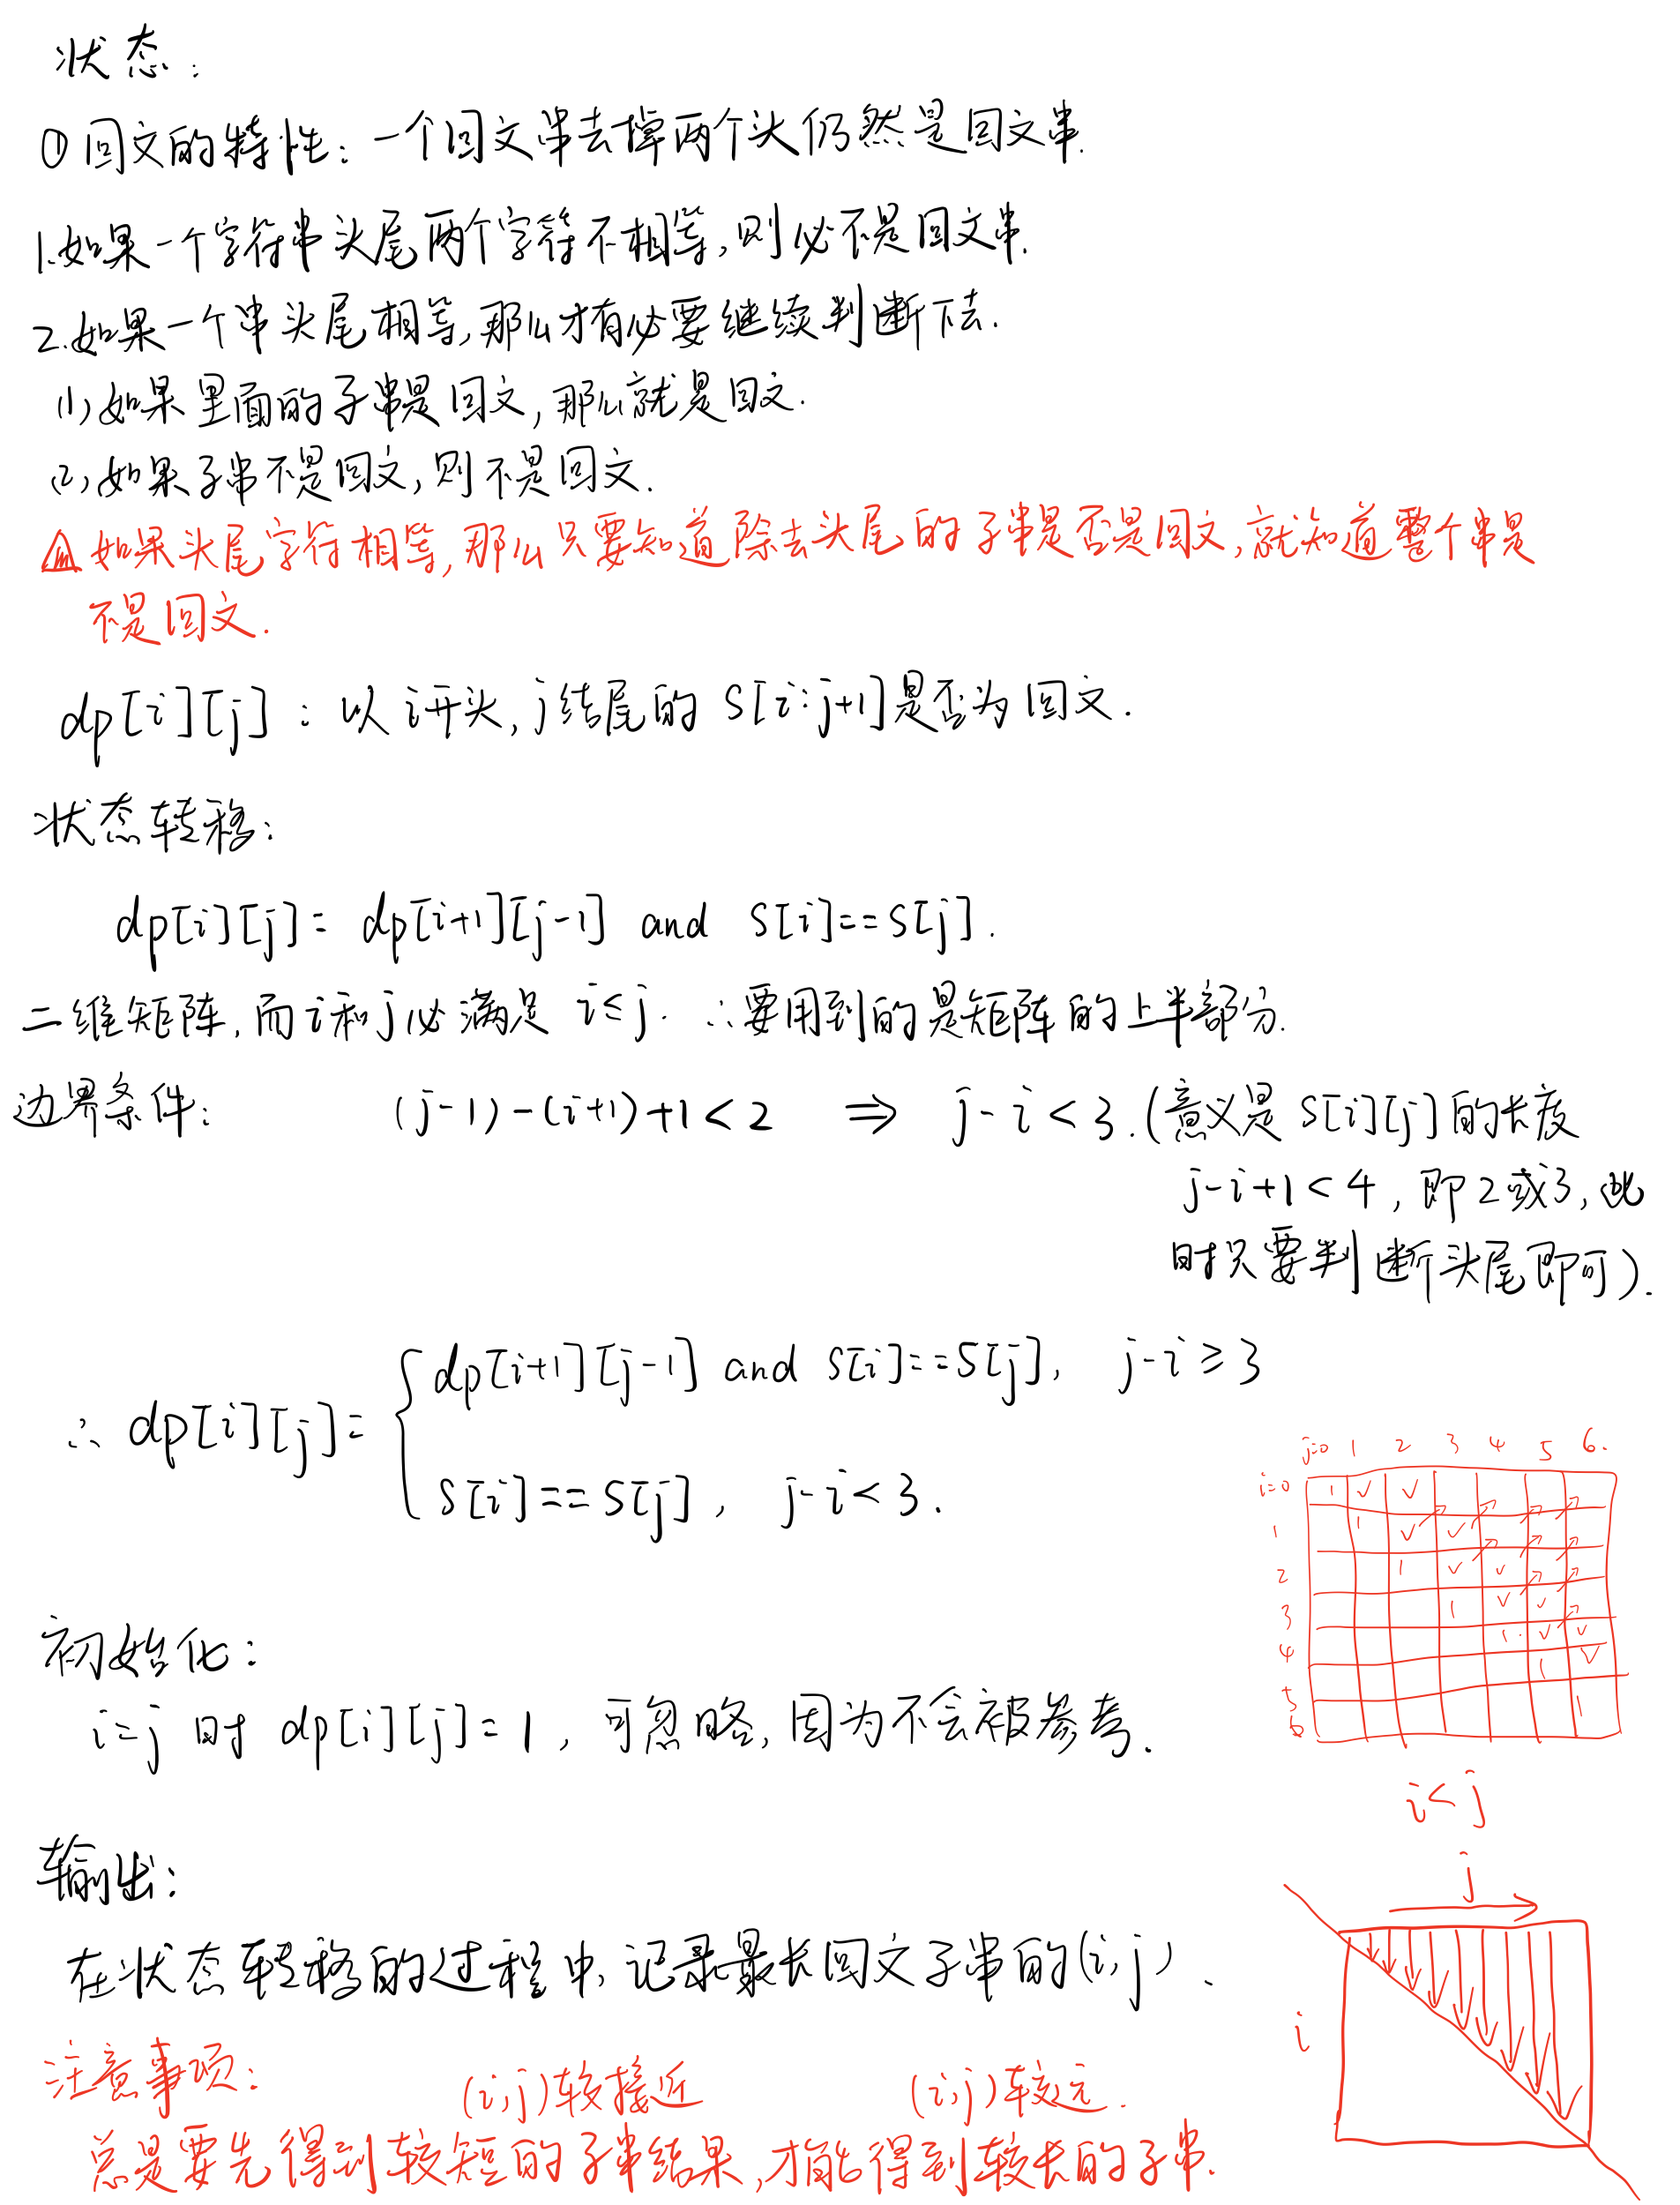 状态:
① 回文的特性: 一个回文串去掉两个头仍然是回文串.
1.如果一个字符串头尾两个字符不相等,则必不是回文串.
2.如果一个串头尾相等,那么才有必要继续判断下去.
(1)如果里面的子串是回文,那么就是回文.
(2)如果子串不是回文,则不是回文.
如果头尾字符相等,那么只要知道除去头尾的子串是否是回文,就知道整个串是
不是回文.
dp[i][j] : 以 i开头, j结尾的 S[i:j+1]是否为回文.
状态转移:
dp[i][j] = dp[i+1][j-1] and S[i]==S[j].
二维矩阵,而i和j必满足 i≤j. ∴要用到的是矩阵的上半部分.
边界条件: (j-1)-(i+1)+1<2 ⇒ j-i<3.(意义是 S[i][j]的长度
j-i+1<4, 即2或3,此
时只要判断头尾即可).
∴ dp[i][j]= { dp[i+1][j-1] and S[i]==S[j], j-i≥3
S[i]==S[j], j-i<3.
j=0 1 2 3 4 5 6.
i=0 1 ✓ ✓
1 1 ✓ ✓
2 1 ✓ ✓
3 1 ✓ ✓
4 1 ✓ ✓
5 1 ✓
6 1
i<j
初始化:
i=j 时 dp[i][j]=1, 可忽略,因为不会被参考.
输出:
在状态转移的过程中,记录最长回文子串的(i,j).
j
i
注意事项: (i,j)较接近 (i,j)较远.
总是要先得到较短的子串结果,才能得到较长的子串.